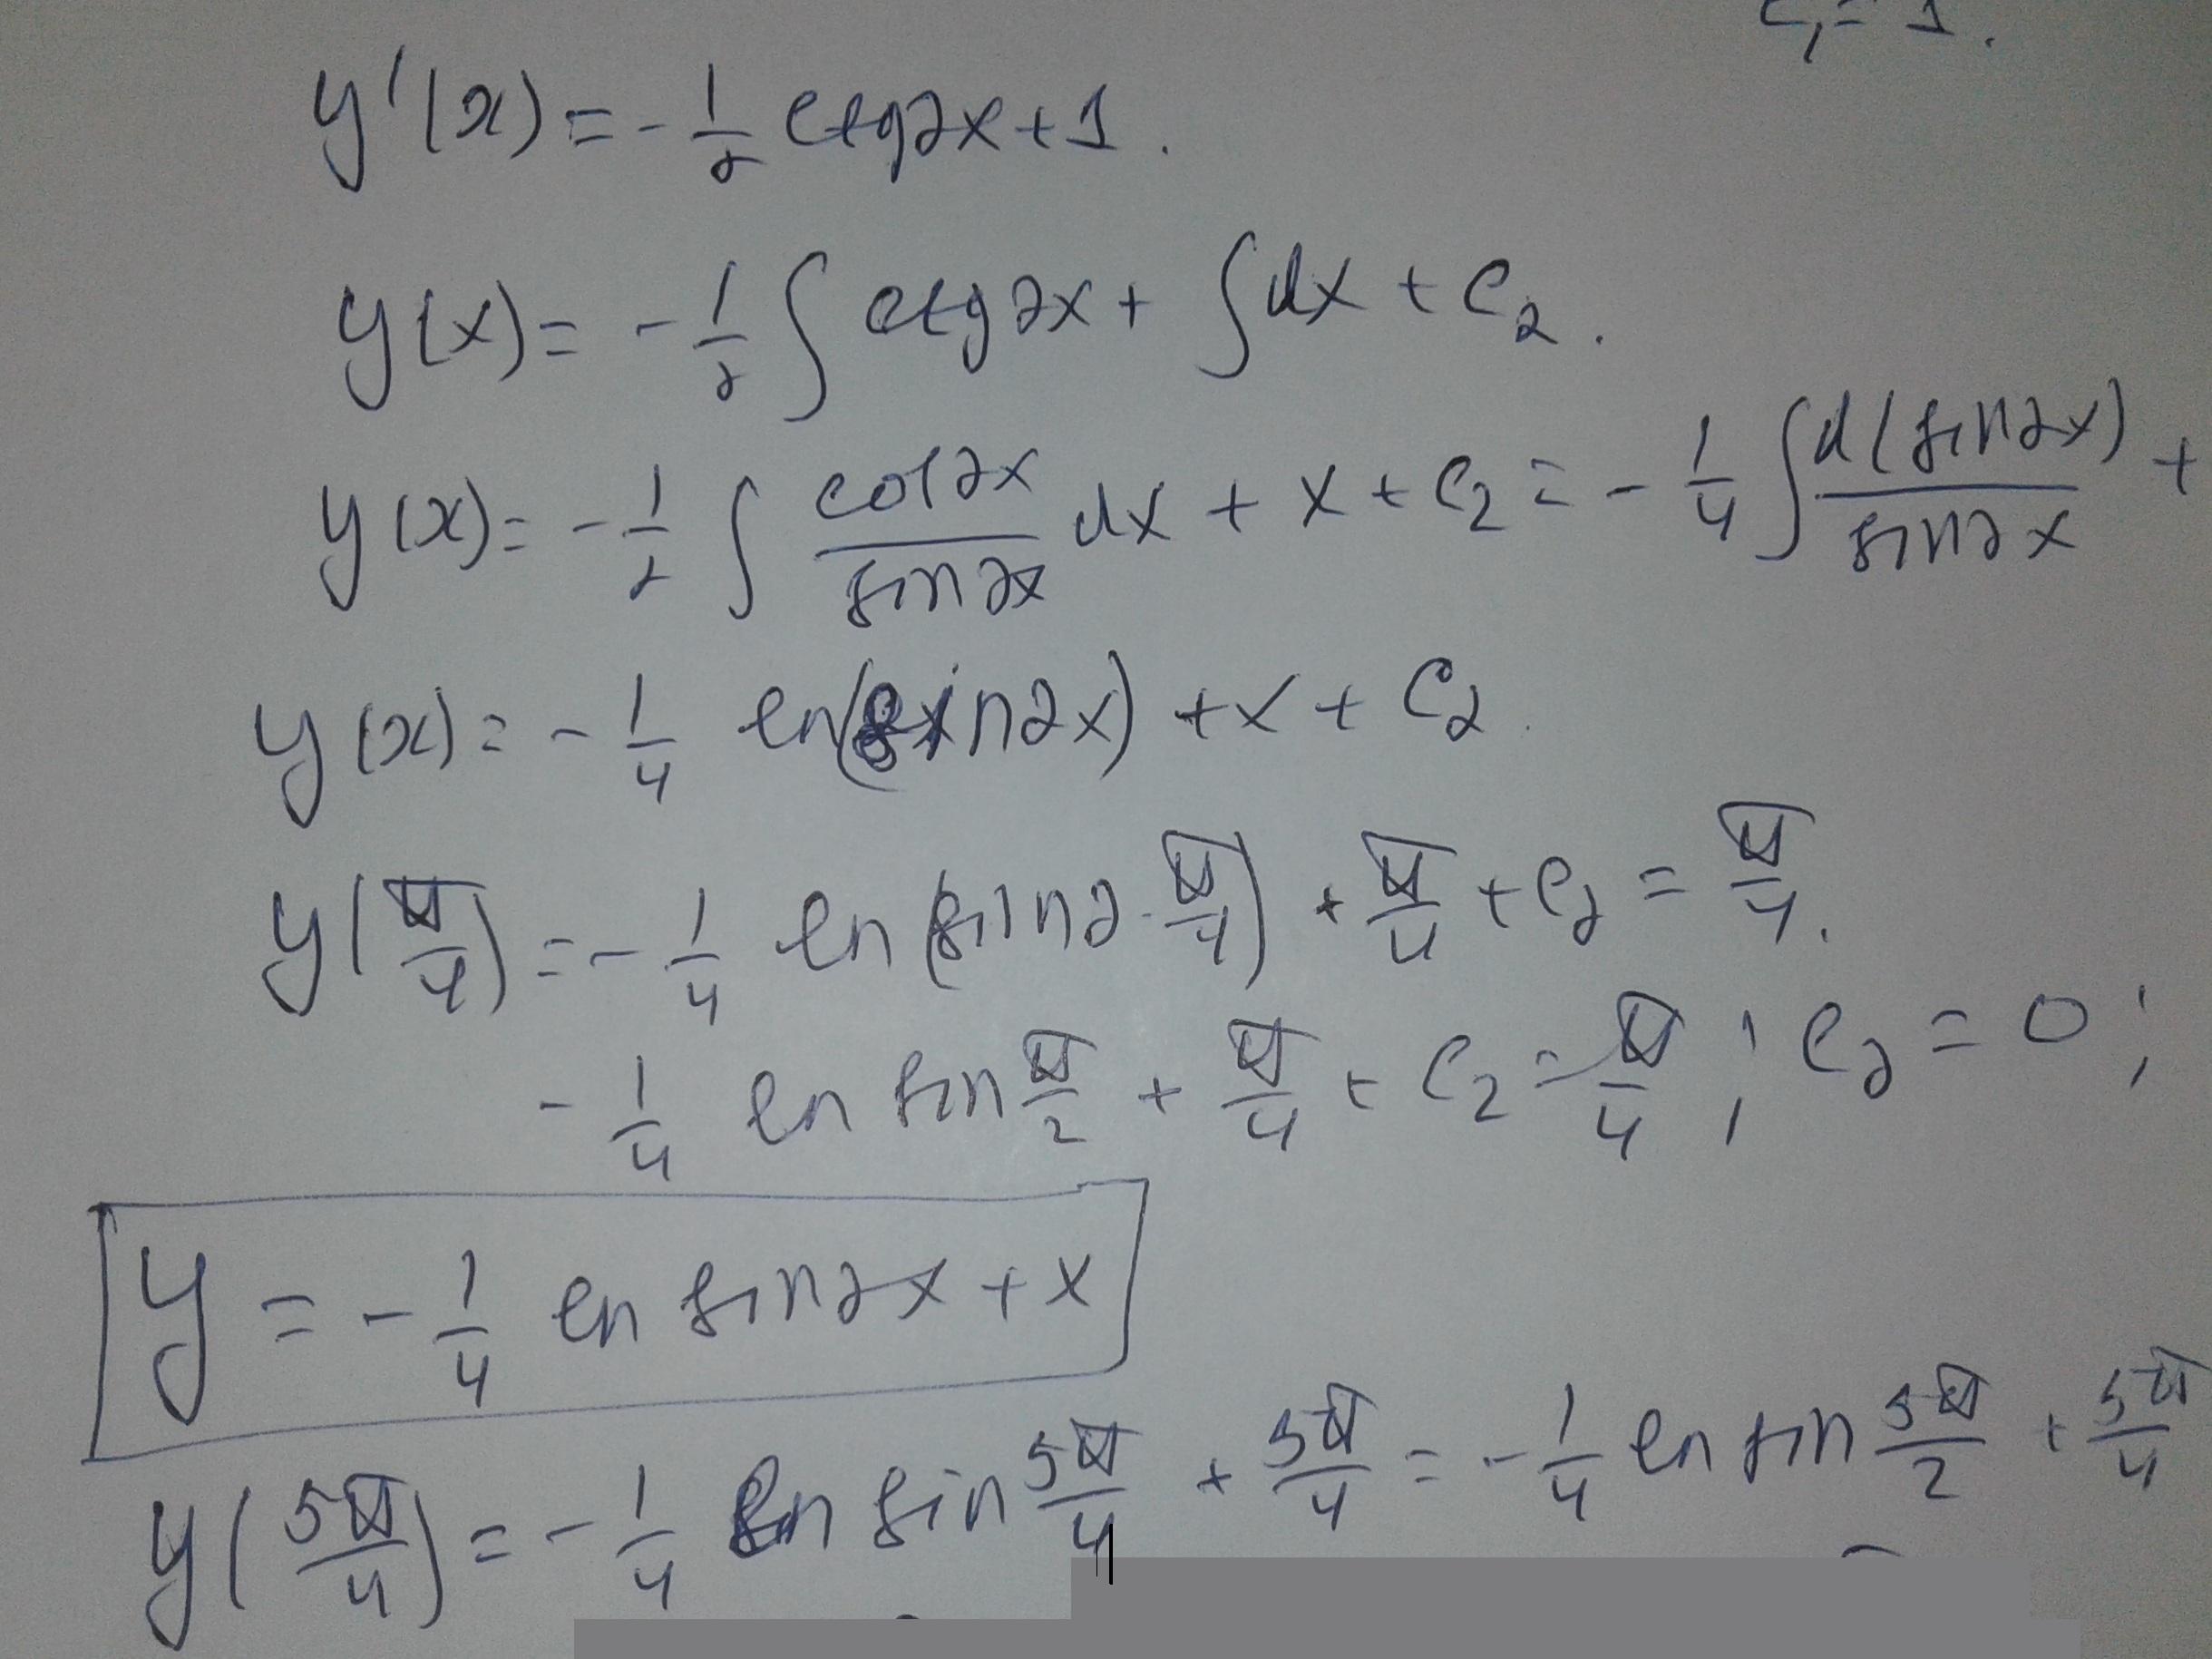 C₁ = 1.
y'(x) = - 1/2 ctg2x + 1.
y(x) = - 1/2 ∫ ctg2x + ∫dx + C₂.
y(x) = - 1/2 ∫ cos2x/sin2x dx + x + C₂ = - 1/4 ∫ d(sin2x)/sin2x +
y(x) = - 1/4 ln(sin2x) + x + C₂.
y(π/4) = - 1/4 ln(sin2·π/4) + π/4 + C₂ = π/4.
- 1/4 ln sin π/2 + π/4 + C₂ = π/4 ; C₂ = 0 ;
y = - 1/4 ln sin2x + x
y(5π/4) = - 1/4 ln sin 5π/4 + 5π/4 = - 1/4 ln sin 5π/2 + 5π/4